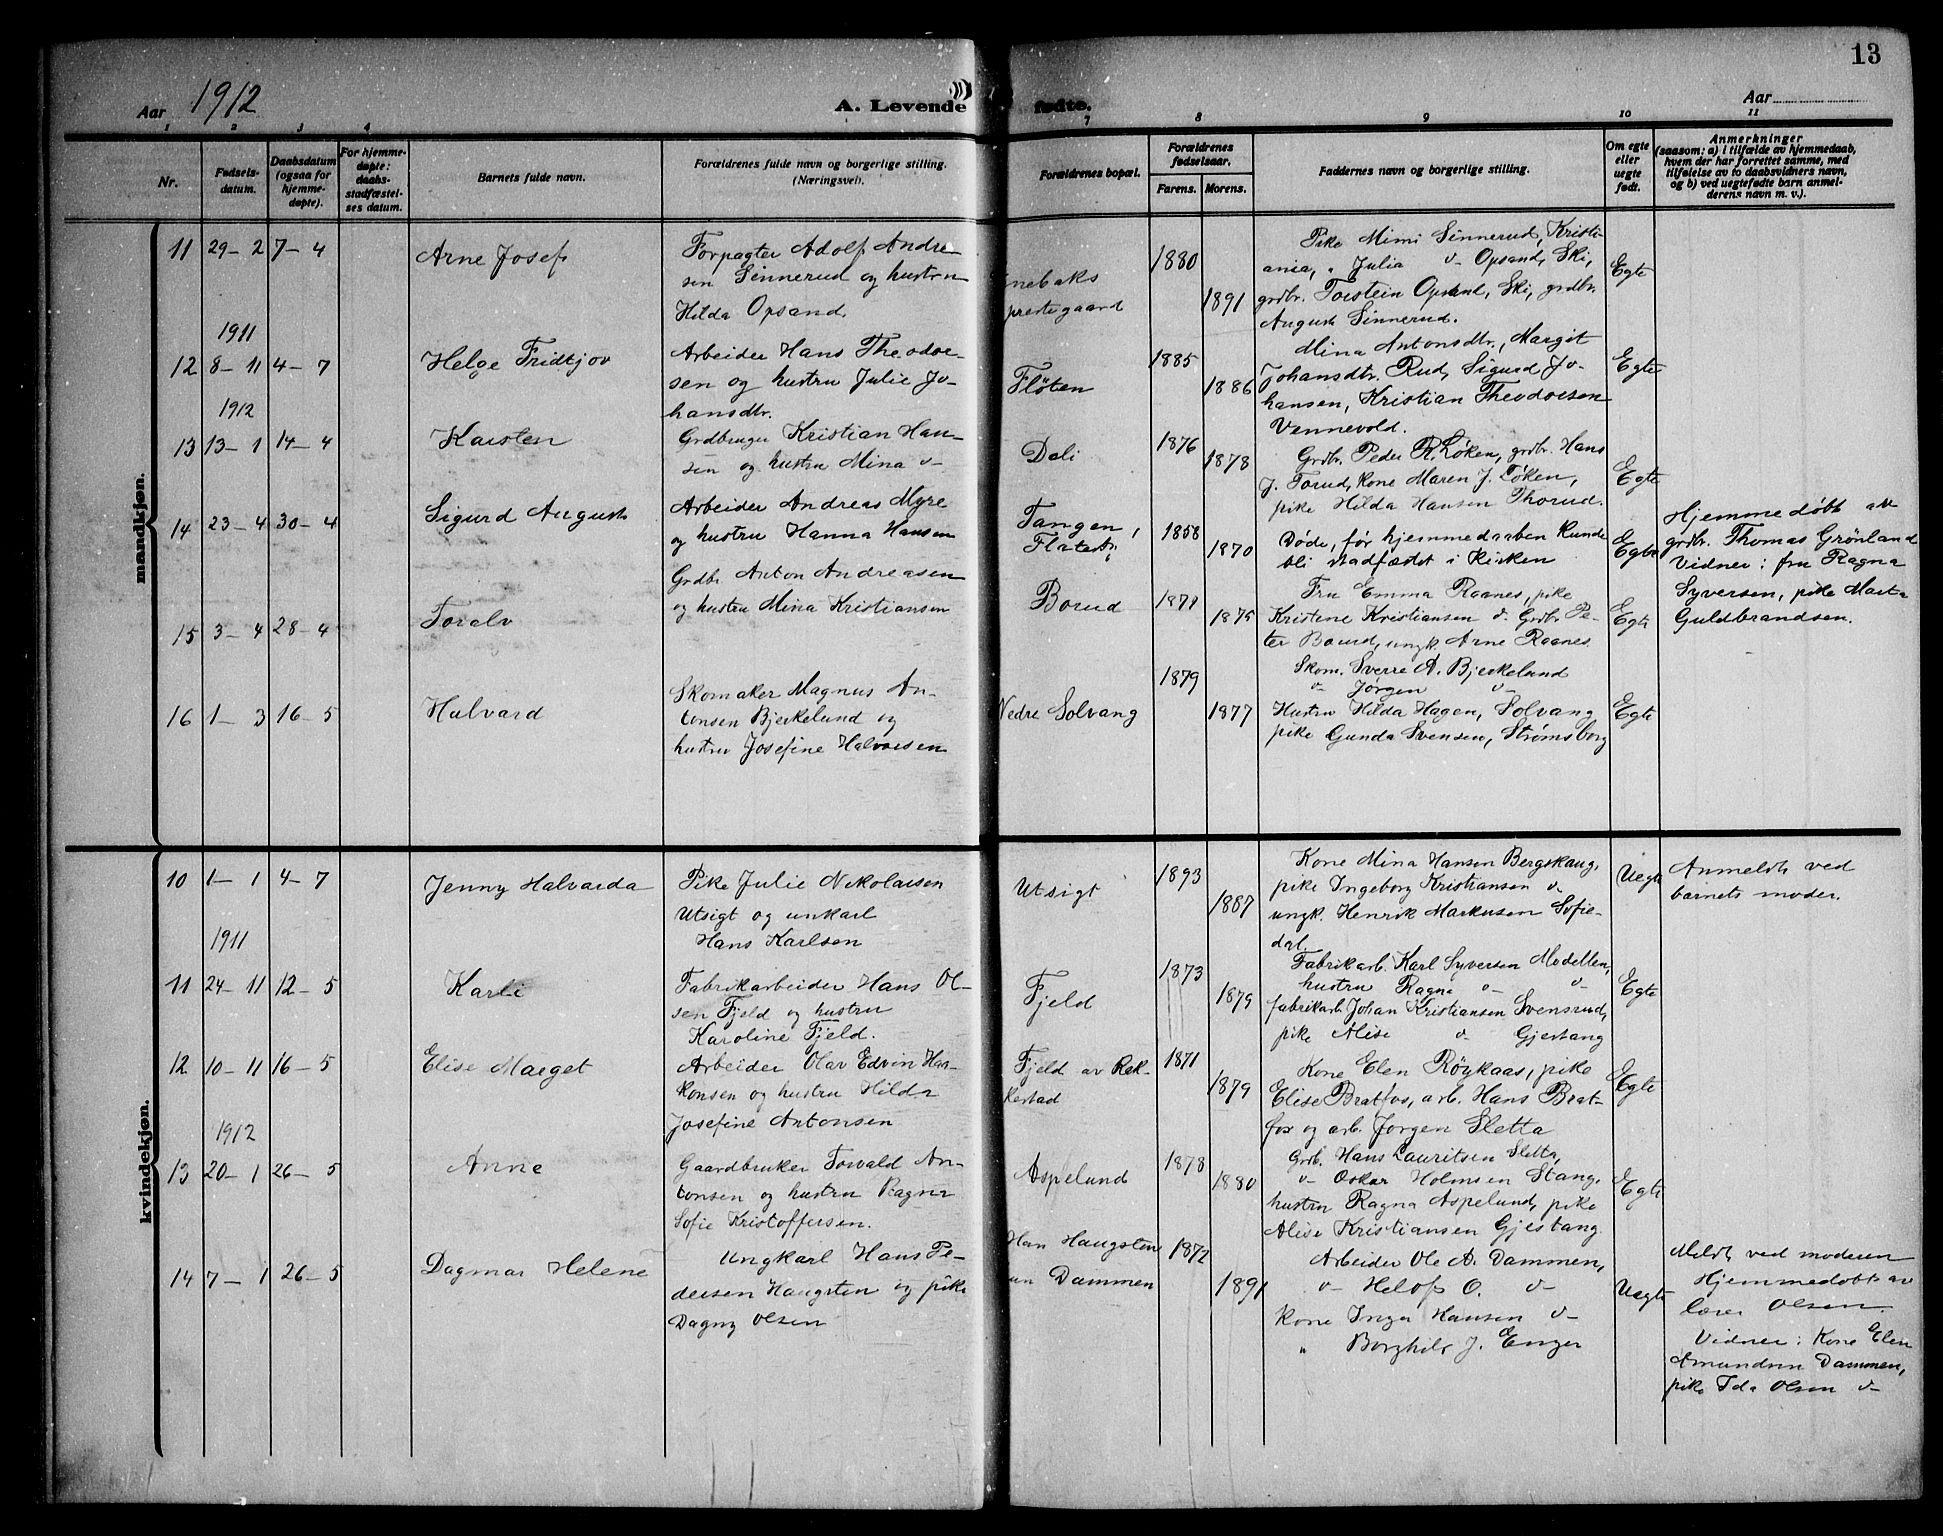 13
Aar 1912
A. Levende fødte.
Aar
1 2 3 4 7 8 9 10 11
Nr.
Fødsels-
datum.
Daabsdatum
(ogsaa for
hjemme-
døpte).
For hjemme-
døpte:
daabs-
stadfæstel-
ses datum.
Barnets fulde navn.
Forældrenes fulde navn og borgerlige stilling.
(Næringsvei).
Forældrenes bopæl.
Forældrenes
fødselsaar.
Farens. Morens.
Faddernes navn og borgerlige stilling.
Om egte
eller
uegte
født.
Anmerkninger
(saasom: a) i tilfælde av hjemmedaab,
hvem der har forrettet samme, med
tilføielse av to daabsvidners navn,
og b) ved uegtefødte barn anmel-
derens navn m. v.).
mandkjøn.
11 29-2 7-4
Arne Josef
Forpagter Adolf Andre-
sen Sinnerud og hustru
Hilda Opsand.
nebaks
prestegaard
1880
1891
Pike Mimi Sinnerud, Kristi-
ania, " Julia v- Opsand, Ski,
grdbr. Torstein Opsand, Ski, grdbr.
August Sinnerud.
Egte
1911
12 8-11 4-7
Helge Fridtjov
Arbeider Hans Theodor-
sen og hustru Julie Jo-
hansdtr.
Fløten
1885
1886
Mina Antonsdtr., Margit
Johansdtr. Rud, Sigurd Jo-
hansen, Kristian Theodorsen
Vennevold.
Egte
1912
13 13-1 14-4
Karsten
Grdbruger Kristian Han-
sen og hustru Mina v-
Dali
1876
1878
Grdbr. Peder R. Løken, grdbr. Hans
J. Torud, kone Maren J. Løken,
pike Hilda Hansen Thorud.
Egte
14 23-4 30-4
Sigurd August
Arbeider Andreas Myre
og hustru Hanna Hansen
Tangen,
Flatebr.
1858
1870
Døde, før hjemmedaaben kunde
bli stadfæstet i kirken
Egte
Hjemmedøbt av
grdbr. Thomas Grönland
Vidner: fru Ragna
Syversen, pike Marta
Guldbrandsen.
15 3-4 28-4
Toralv
Grdbr. Anton Andreasen
og hustru Mina Kristiansen
Borud
1871
1875
Fru Emma Raanes, pike
Kristene Kristiansen v- Grdbr. Pe-
ter Borud, ungk. Arne Raanes.
Egte
16 1-3 16-5
Halvard
Skomaker Magnus An-
tonsen Bjerkelund og
hustru Josefine Halvorsen
Nedre Solvang
1879
1877
Skom. Sverre A. Bjerkelund
v- Jørgen v-
Hustru Hilda Hagen, Solvang
pike Gunda Svensen, Strømsborg
Egte
kvindekjøn.
10 1-1 4-7
Jenny Halvarda
Pike Julie Nikolaisen
Utsigt og unkarl
Hans Karlsen
Utsigt
1893
1887
Kone Mina Hansen Bergskaug,
pike Ingeborg Kristiansen v-
ungk. Henrik Markusen Sofie-
dal.
Uegte
Anmeldt ved
barnets moder.
1911
11 24-11 12-5
Karli
Fabrikarbeider Hans Ol-
sen Fjeld og hustru
Karoline Fjeld.
Fjeld
1873
1879
Fabrikarb. Karl Syversen Modellen,
hustru Ragna v- v-
fabrikarb. Johan Kristiansen Svensrud,
pike Alise v- Gjestang
Egte
12 10-11 16-5
Elise Marget
Arbeider Olav Edvin Haa-
konsen og hustru Hilda
Josefine Antonsen
Fjeld av Rak-
kestad
1871
1879
Kone Elen Röykaas, pike
Elise Bratfos, arb. Hans Brat-
fos og arb. Jørgen Sletta
Egte
1912
13 20-1 26-5
Anne
Gaardbruker Torvald An-
tonsen og hustru Ragna
Sofie Kristoffersen.
Aspelund
1878
1880
Grdb. Hans Lauritsen Sletta,
v- Oskar Holmsen Stang,
hustru Ragna Aspelund, pike
Alise Kristiansen Gjestang.
Egte
14 7-1 26-5
Dagmar Helene
Ungkarl Hans Pe-
dersen Haugsten og pike
Dagny Olsen
Han Haugsten
un Dammen
1872
1891
Arbeider Ole A. Dammen,
v- Helof O. v-
Kone Inga Hansen v-
" Borghild J. Enger
Uegte
Meldt ved moderen
Hjemmedøbt av
lærer Olsen.
Vidner: Kone Elen
Amundsen Dammen,
pike Ida Olsen v-